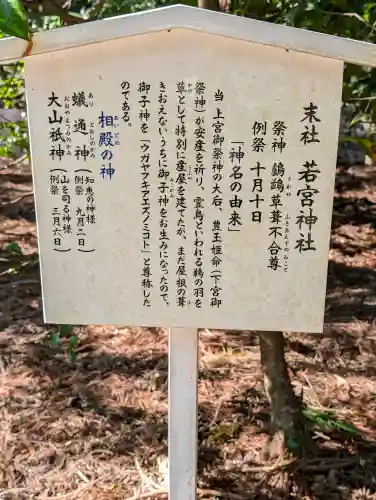 末社 若宮神社
祭神 鸕鷀草葺不合尊
うがや ふきあえずのみこと
例祭 十月十日
「神名の由来」
当 上宮御祭神の大后、豊玉姫命(下宮御
祭神)が安産を祈り、霊鳥といわれる鵜の羽を
かや
草として特別に産屋を建てたが、まだ屋根の葺
きおえないうちに御子神をお生みになったので、
みこがみ
御子神を「ウガヤフキアエズノミコト」と尊称した
のである。
あいどの
相殿の神
あり とおしのかみ
蟻通神(知恵の神様
例祭 九月二日)
おおやまつみのかみ
大山祇神(山を司る神様
例祭 三月六日)